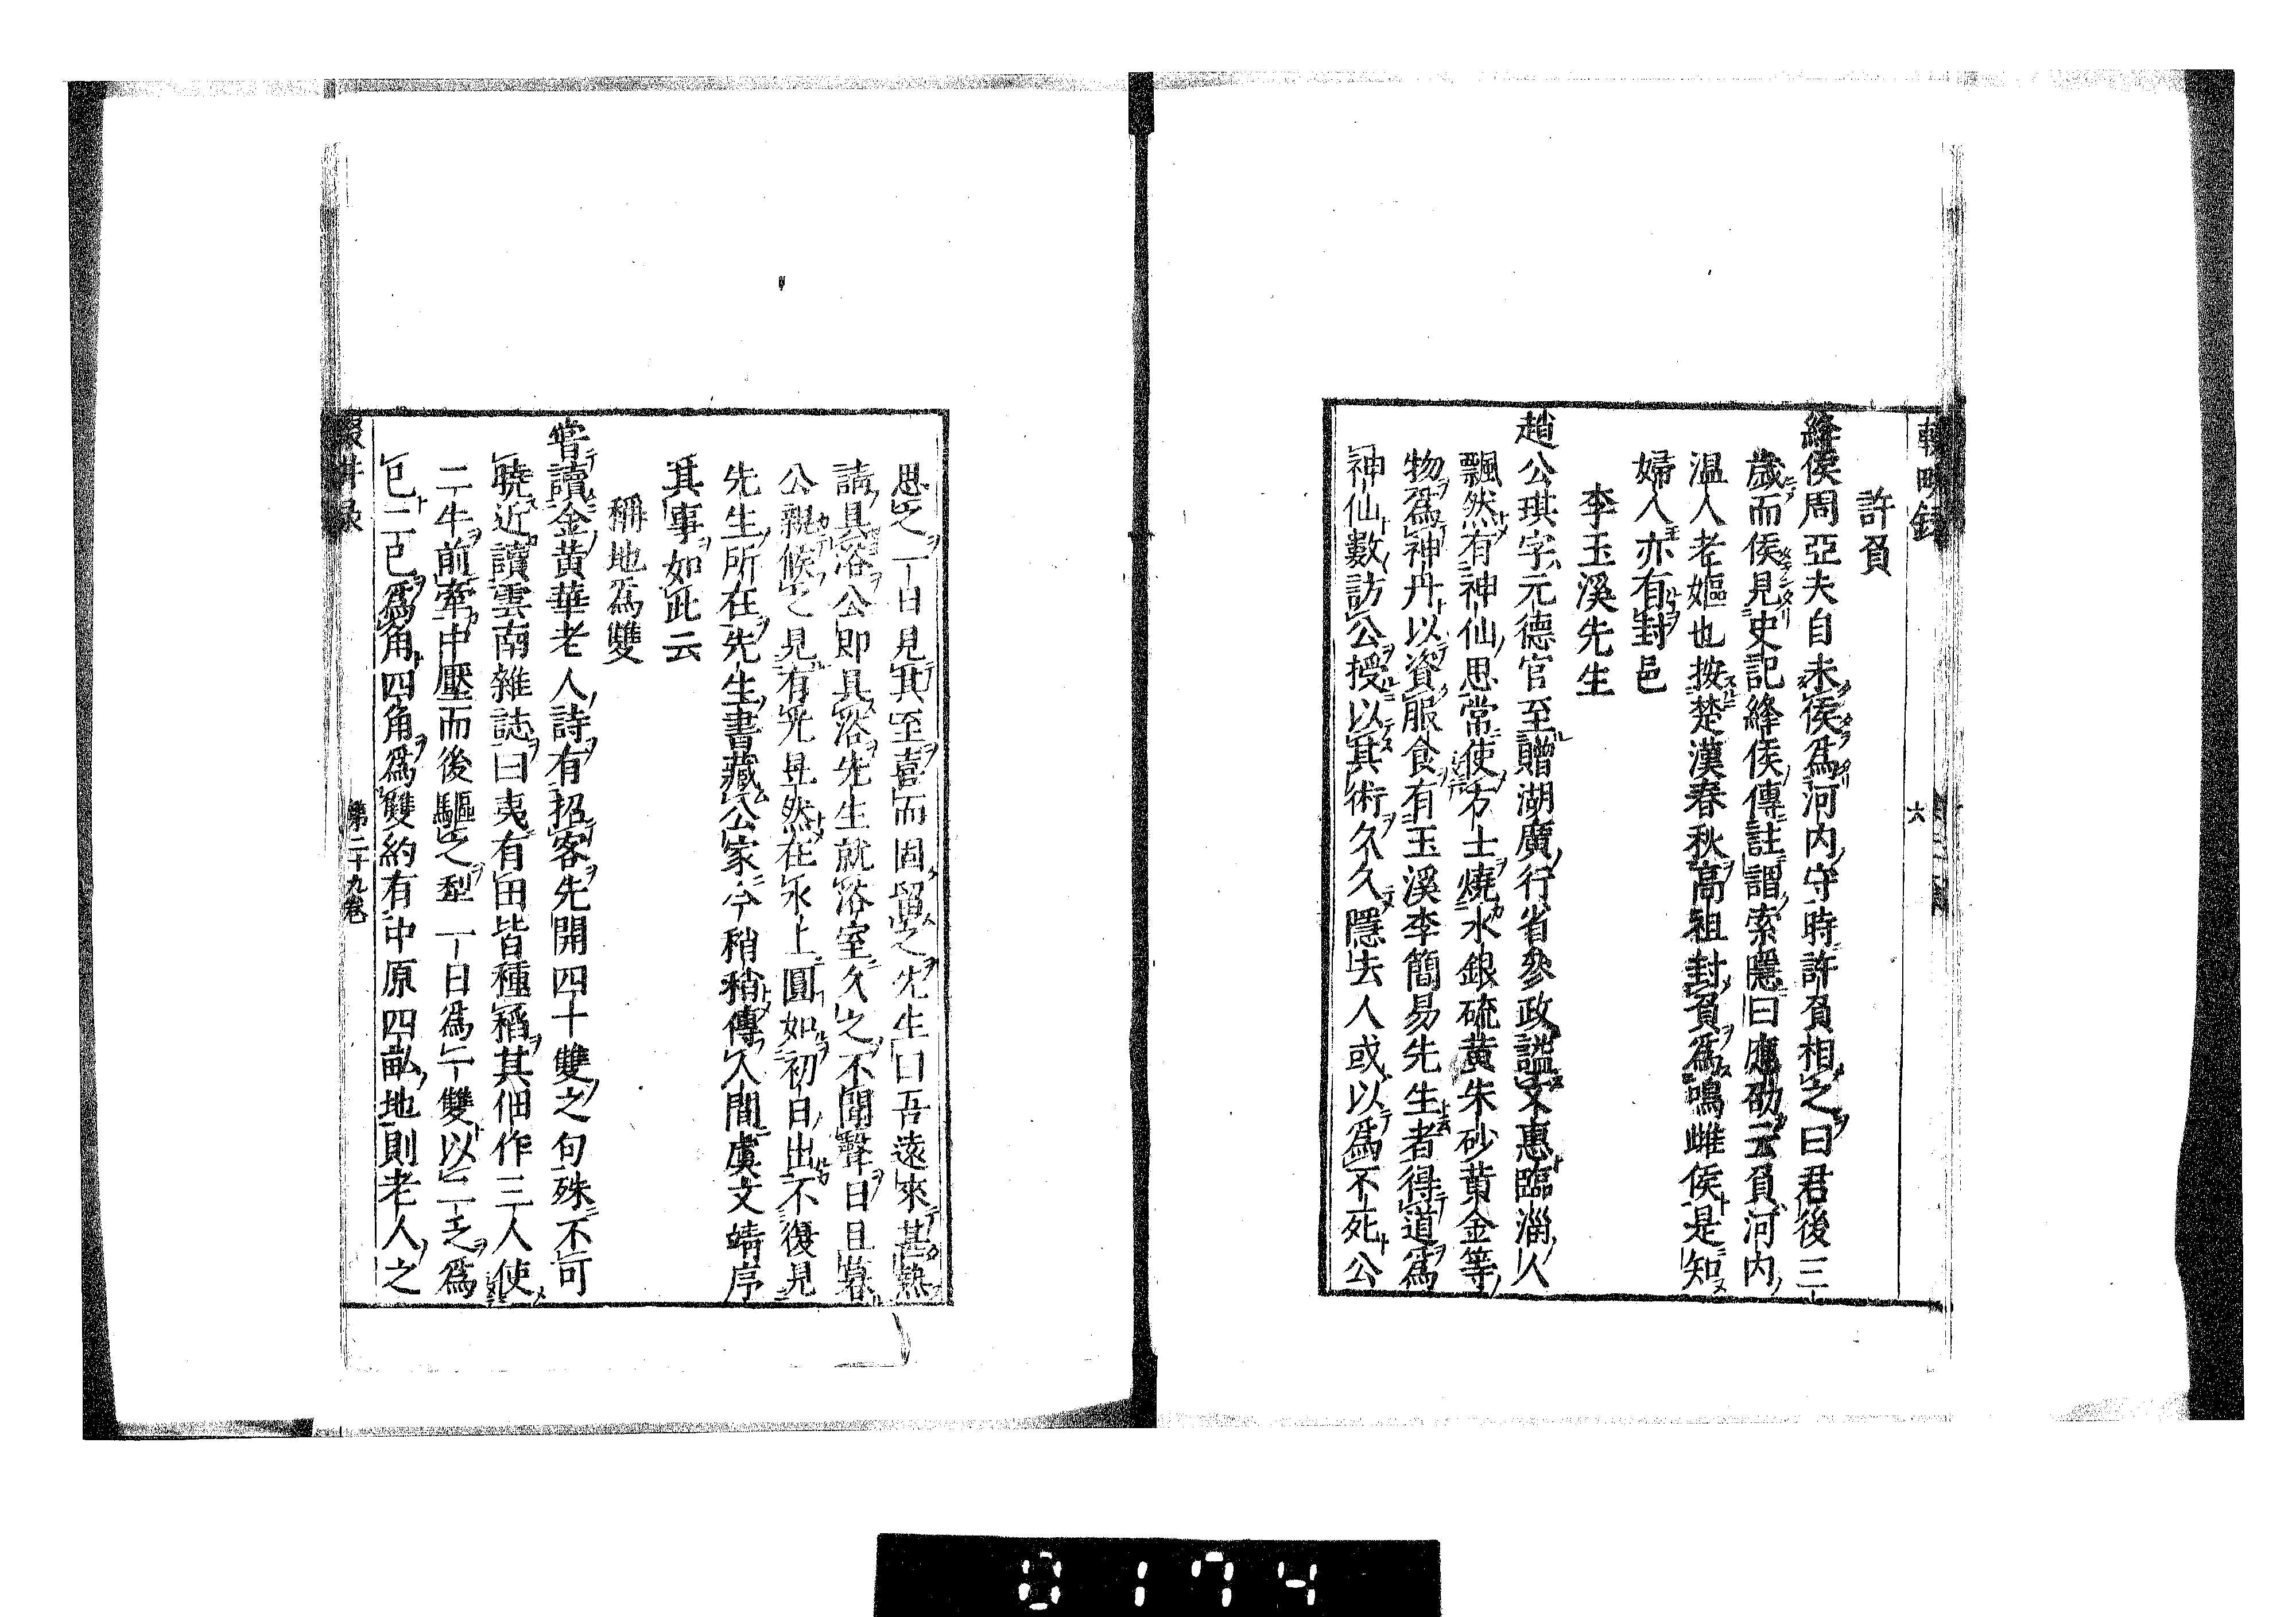 輟畊録
六
許負
絳侯周亞夫自未侯爲河内守時許負相之曰君後三
歲而侯見史記絳侯傳註謂索隱曰應劭云負河内
温人老嫗也按楚漢春秋高祖封負爲鳴雌侯是知
婦人亦有封邑
李玉溪先生
趙公琪字元德官至贈湖廣行省參政謚文惠臨淄人
飄然有神仙思常使方士燒水銀硫黄朱砂黄金等
物爲神丹以資服食有玉溪李簡易先生者得道爲
神仙數訪公授以其術久久隱去人或以爲不死公
思之一日見其至喜而固留之先生曰吾遠來甚熱
請具浴公即具浴先生就浴室久之不聞聲日且暮
公親候之見有光晃然在水上圓如初日出不復見
先生所在先生書藏公家今稍稍傳人間虞文靖序
其事如此云
稱地爲雙
嘗讀金黄華老人詩有招客先開四十雙之句殊不可
曉近讀雲南雜誌曰夷有田皆種稻其佃作三人使
二牛前牽中壓而後驅之犁一日爲一雙以二乏爲
巳二巳爲角四角爲雙約有中原四畝地則老人之
輟畊录
第二十九卷
0174